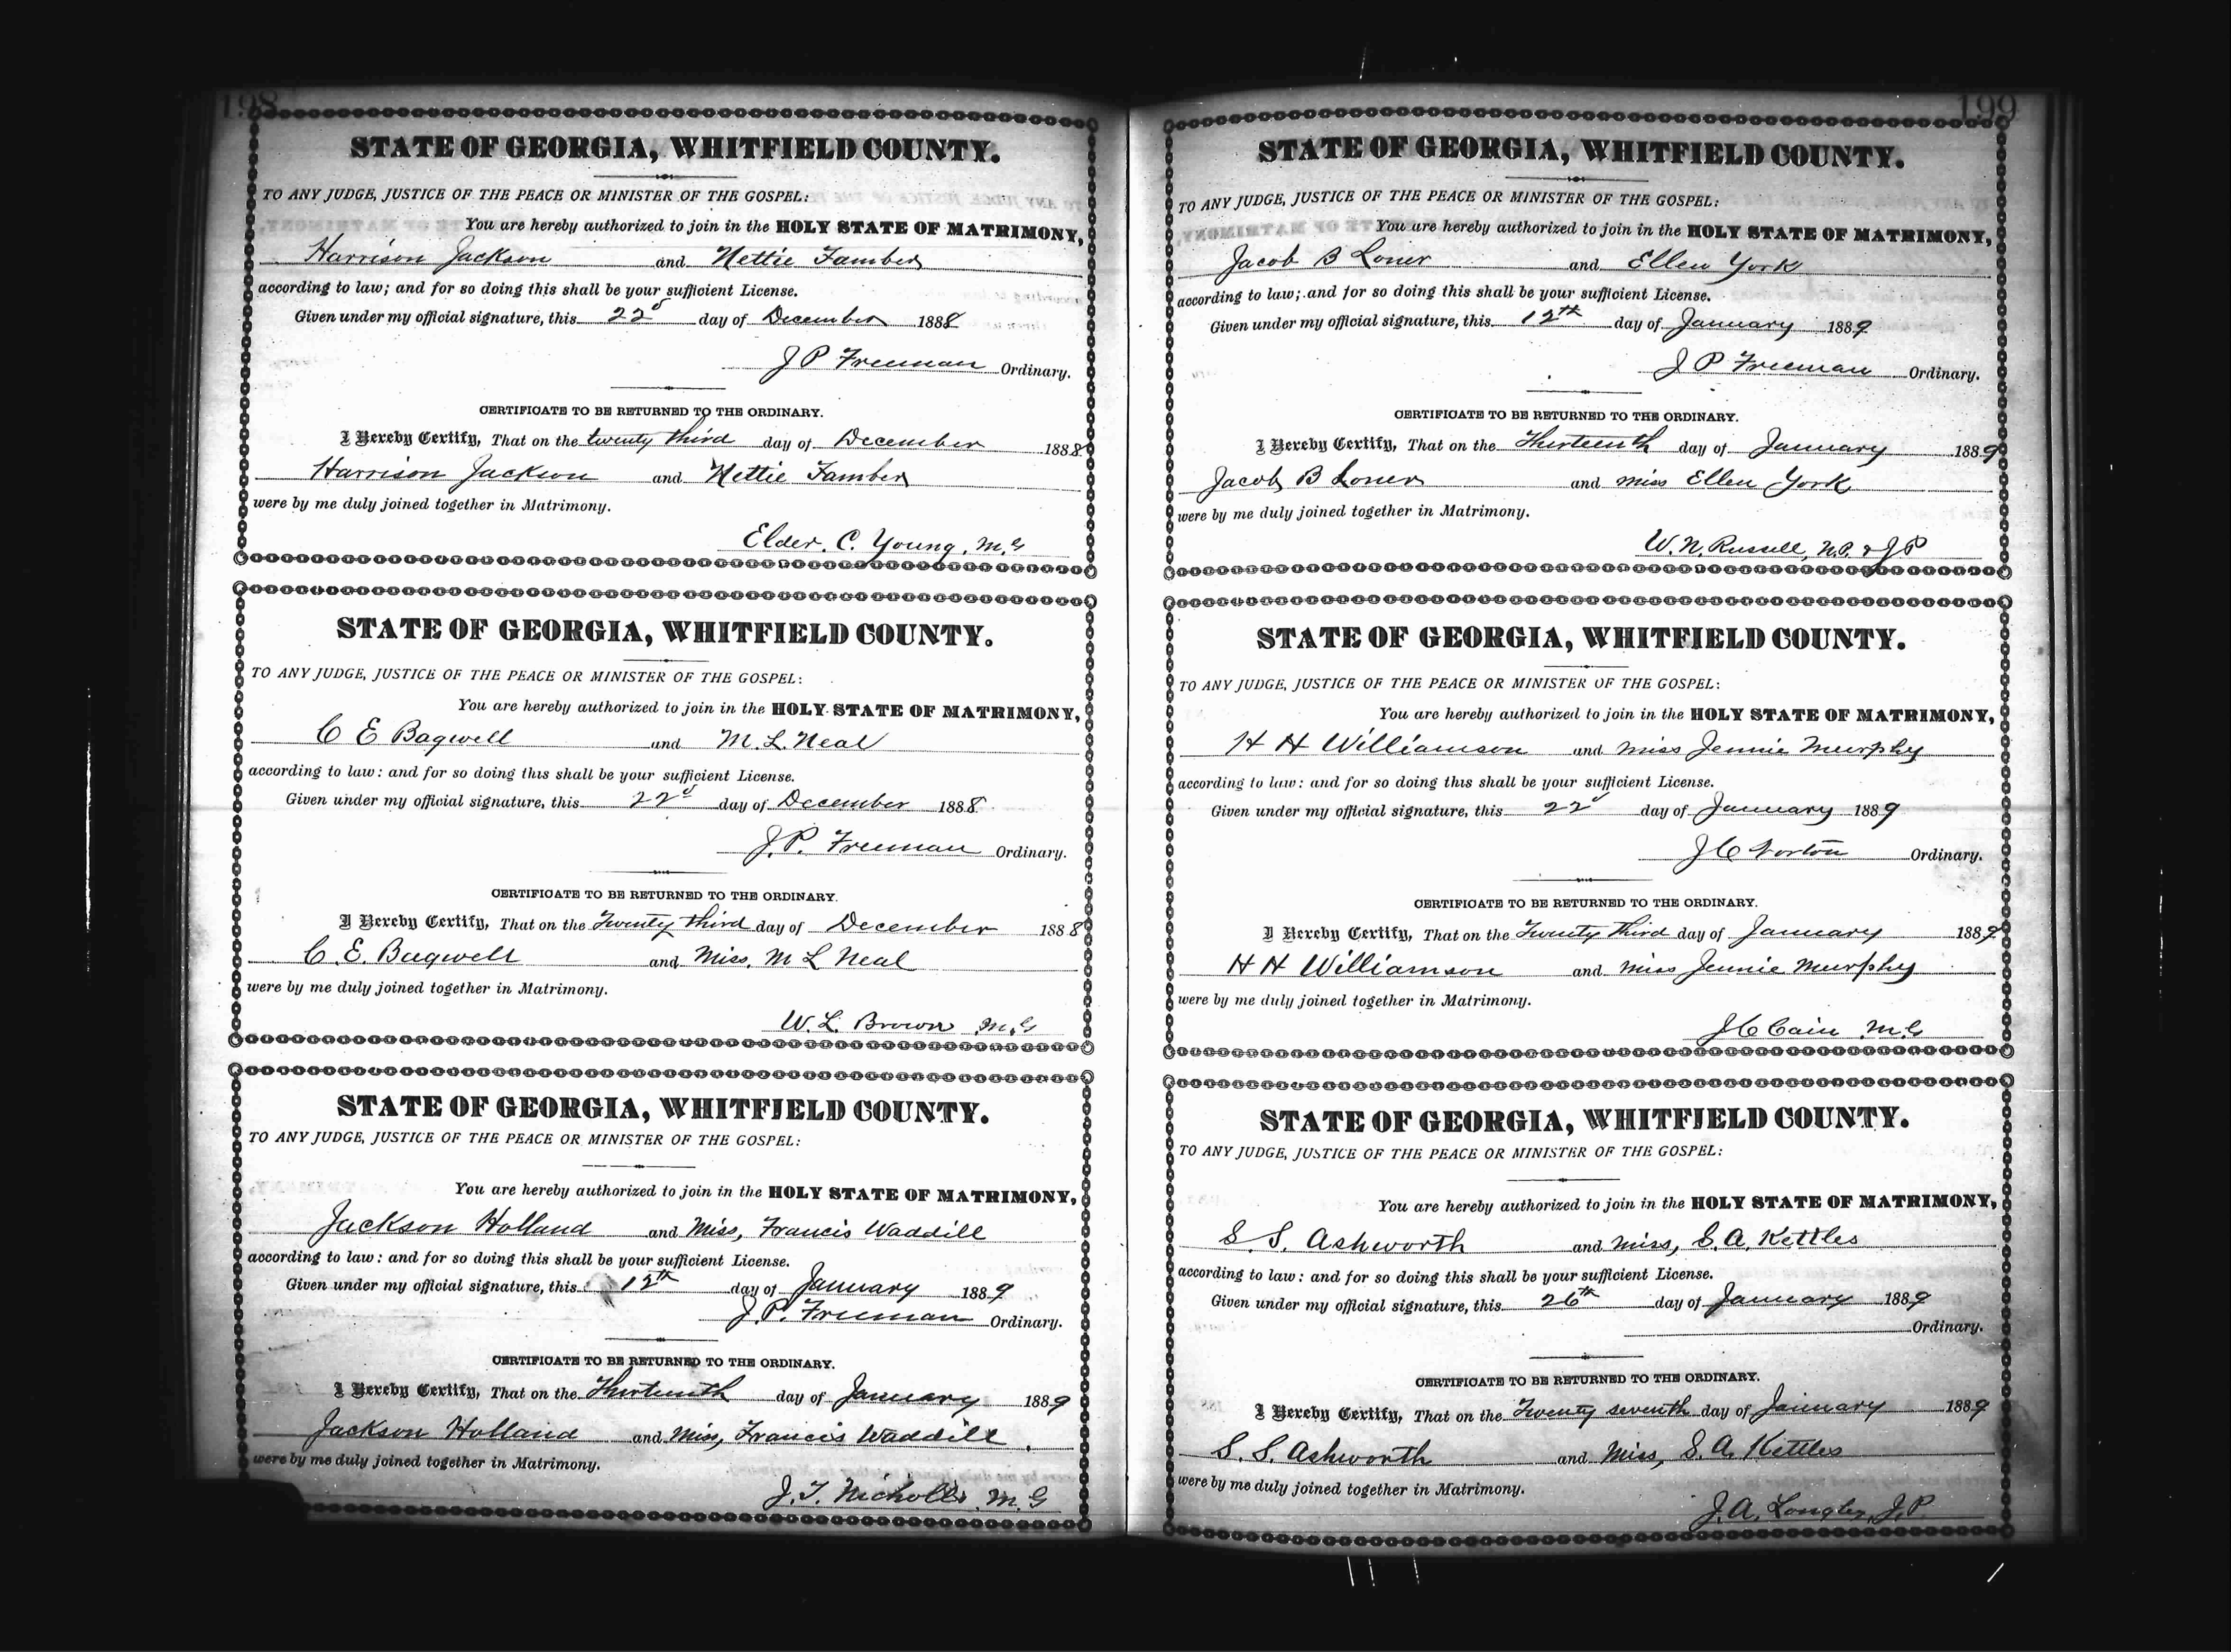 198
STATE OF GEORGIA, WHITFIELD COUNTY.
TO ANY JUDGE, JUSTICE OF THE PEACE OR MINISTER OF THE GOSPEL:
You are hereby authorized to join in the HOLY STATE OF MATRIMONY,
Harrison Jackson and Nettie Famber
according to law; and for so doing this shall be your sufficient License.
Given under my official signature, this 22d day of December 1888
J P Freeman Ordinary.
CERTIFICATE TO BE RETURNED TO THE ORDINARY.
I Hereby Certify, That on the twenty third day of December 1888
Harrison Jackson and Nettie Famber
were by me duly joined together in Matrimony.
Elder. C. Young, M.G
STATE OF GEORGIA, WHITFIELD COUNTY.
TO ANY JUDGE, JUSTICE OF THE PEACE OR MINISTER OF THE GOSPEL:
You are hereby authorized to join in the HOLY STATE OF MATRIMONY,
C E Bagwell and M. L Neal
according to law: and for so doing this shall be your sufficient License.
Given under my official signature, this 22d day of December 1888
J. P. Freeman Ordinary.
CERTIFICATE TO BE RETURNED TO THE ORDINARY.
I Hereby Certify, That on the Twenty third day of December 1888
C. E. Bagwell and Miss. M L Neal
were by me duly joined together in Matrimony.
W. L. Brown M.G
STATE OF GEORGIA, WHITFIELD COUNTY.
TO ANY JUDGE, JUSTICE OF THE PEACE OR MINISTER OF THE GOSPEL:
You are hereby authorized to join in the HOLY STATE OF MATRIMONY,
Jackson Holland and Miss, Francis Waddill
according to law: and for so doing this shall be your sufficient License.
Given under my official signature, this 12th day of January 1889
J. P. Freeman Ordinary.
CERTIFICATE TO BE RETURNED TO THE ORDINARY.
I Hereby Certify, That on the Thirteenth day of January 1889
Jackson Holland and Miss, Francis Waddill.
were by me duly joined together in Matrimony.
J. T. Nicholls, M. G
199
STATE OF GEORGIA, WHITFIELD COUNTY.
TO ANY JUDGE, JUSTICE OF THE PEACE OR MINISTER OF THE GOSPEL:
You are hereby authorized to join in the HOLY STATE OF MATRIMONY,
Jacob B Loner and Ellen York
according to law; and for so doing this shall be your sufficient License.
Given under my official signature, this 12th day of January 1889
J P Freeman Ordinary.
CERTIFICATE TO BE RETURNED TO THE ORDINARY.
I Hereby Certify, That on the Thirteenth day of January 1889
Jacob B Loner and miss Ellen York
were by me duly joined together in Matrimony.
W. N. Russell, N.P. & J P
STATE OF GEORGIA, WHITFIELD COUNTY.
TO ANY JUDGE, JUSTICE OF THE PEACE OR MINISTER OF THE GOSPEL:
You are hereby authorized to join in the HOLY STATE OF MATRIMONY,
H H Williamson and miss Jennie Murphy
according to law: and for so doing this shall be your sufficient License.
Given under my official signature, this 22d day of January 1889
J C Norton Ordinary.
CERTIFICATE TO BE RETURNED TO THE ORDINARY.
I Hereby Certify, That on the Twenty third day of January 1889
H H Williamson and miss Jennie Murphy
were by me duly joined together in Matrimony.
J C Cain M.G
STATE OF GEORGIA, WHITFIELD COUNTY.
TO ANY JUDGE, JUSTICE OF THE PEACE OR MINISTER OF THE GOSPEL:
You are hereby authorized to join in the HOLY STATE OF MATRIMONY,
S. S. Ashworth and miss, S. A. Kettles
according to law: and for so doing this shall be your sufficient License.
Given under my official signature, this 26th day of January 1889
Ordinary.
CERTIFICATE TO BE RETURNED TO THE ORDINARY.
I Hereby Certify, That on the Twenty seventh day of January 1889
S. S. Ashworth and Miss, S. A. Kettles
were by me duly joined together in Matrimony.
J. A. Longley, J. P.